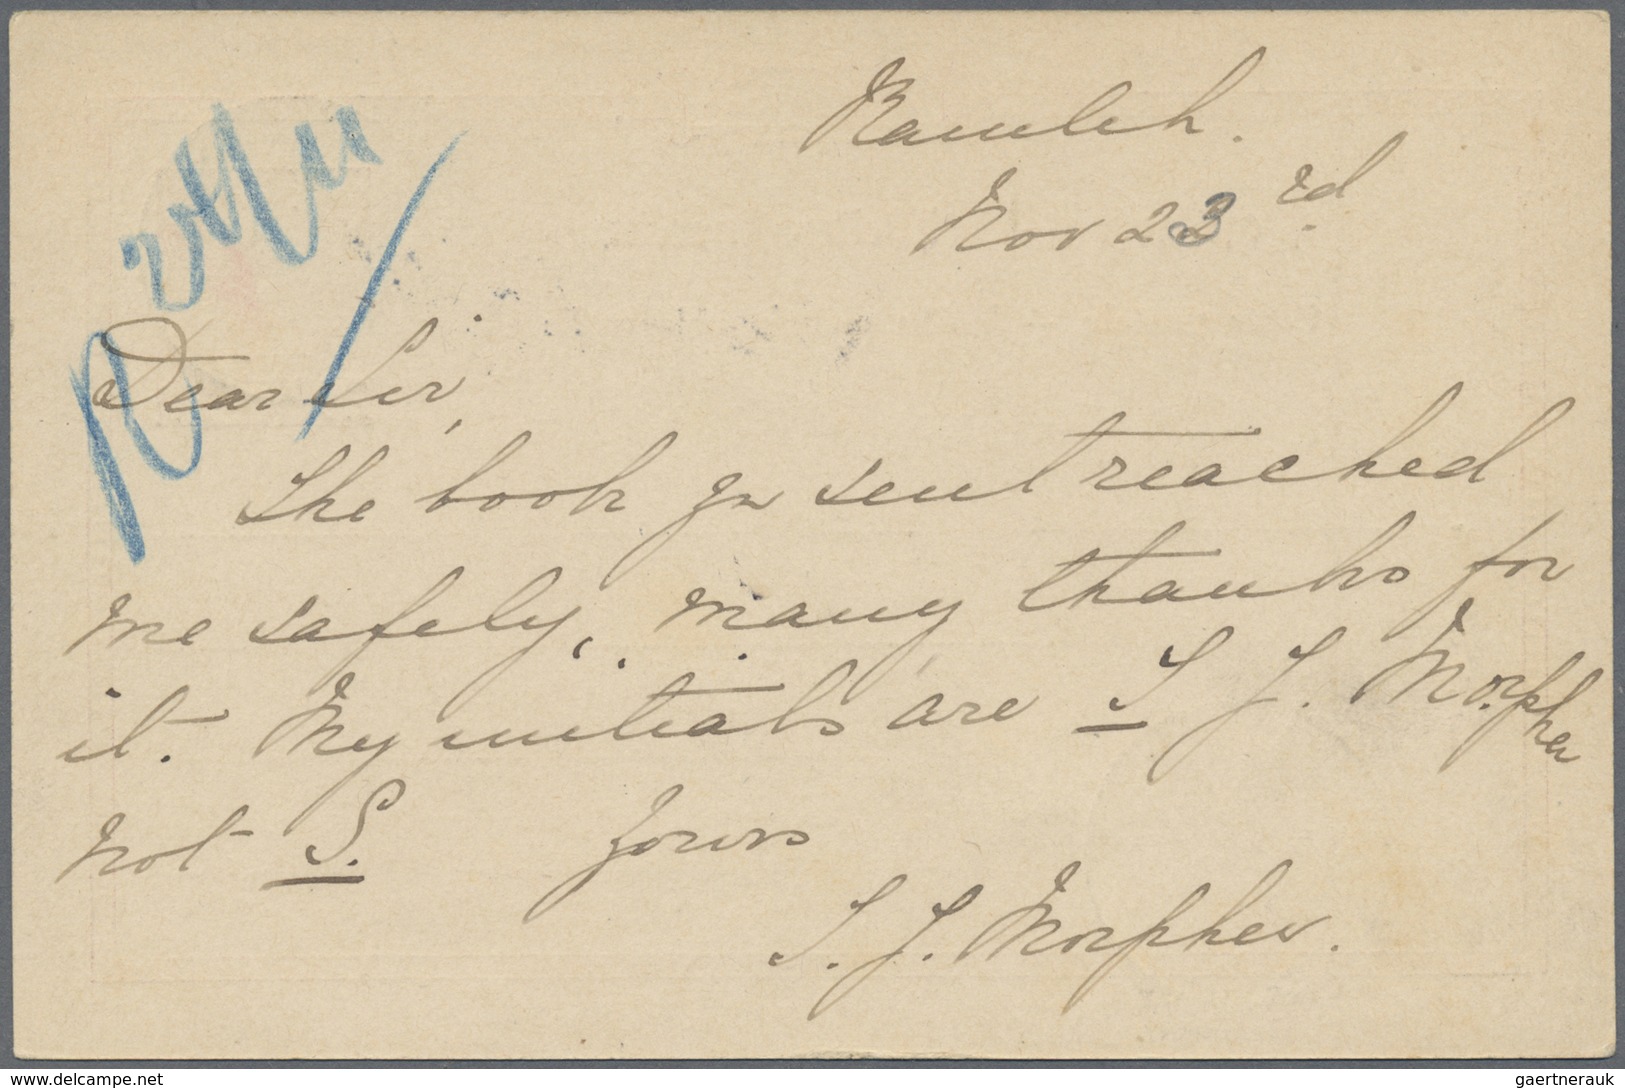 Ramleh.
Nov 23rd
Dear Sir,
The book yu sent reached
me safely, many thanks for
it. My initials are I J. Morpher
not S. Yours
I. J. Morpher.
www.delcampe.net
gaertnerauk